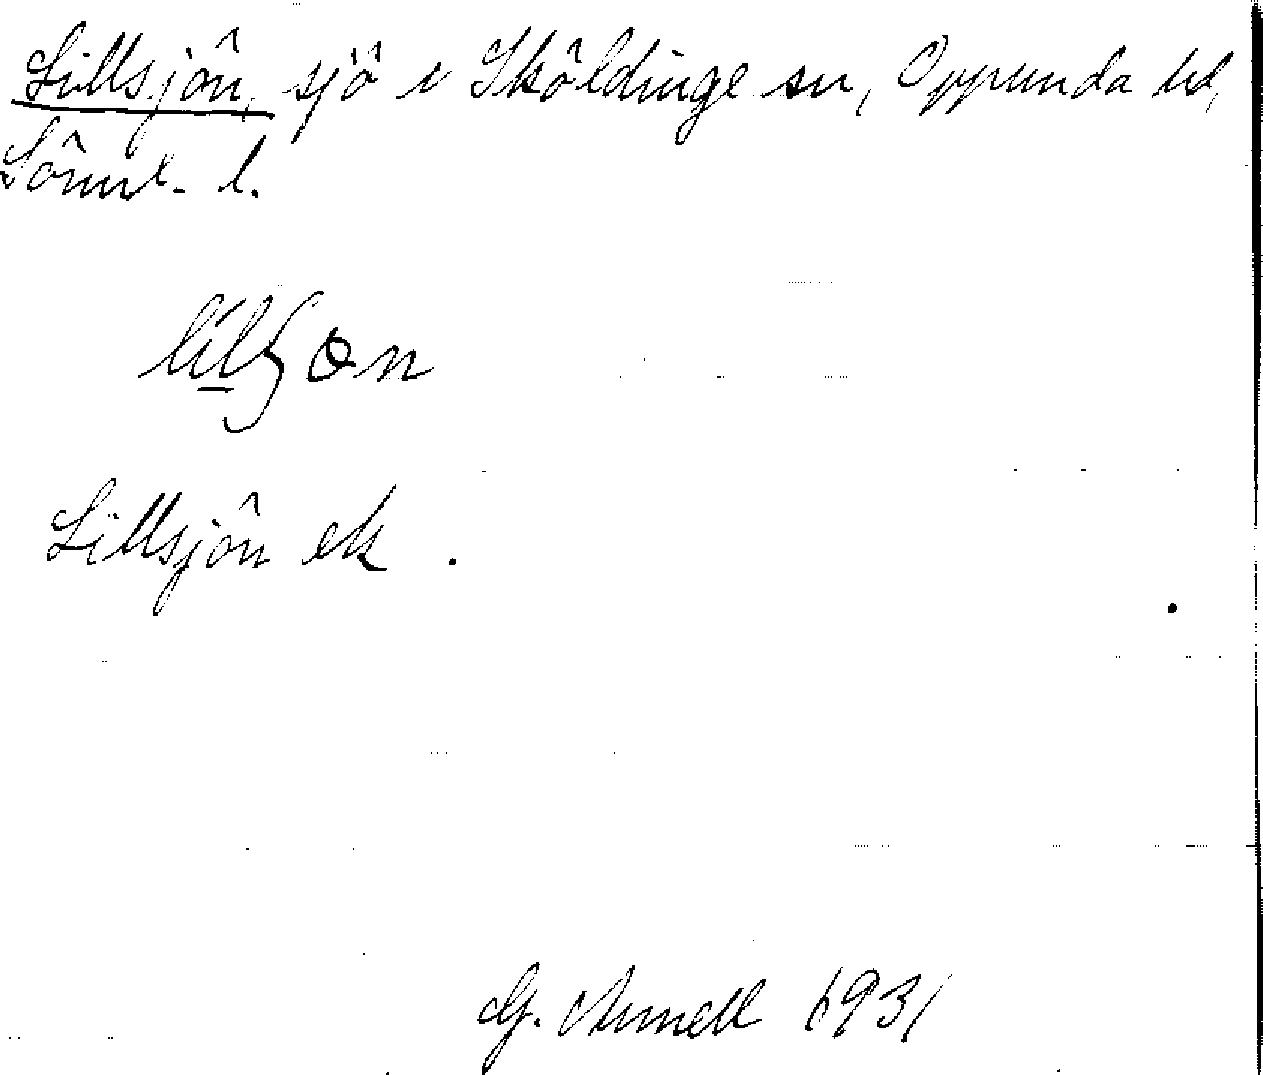 Lillsjön, sjö i Sköldinge sn, Oppunda hd,
Sörml. l.
Lillsjön ek.
G. Arnell 1931